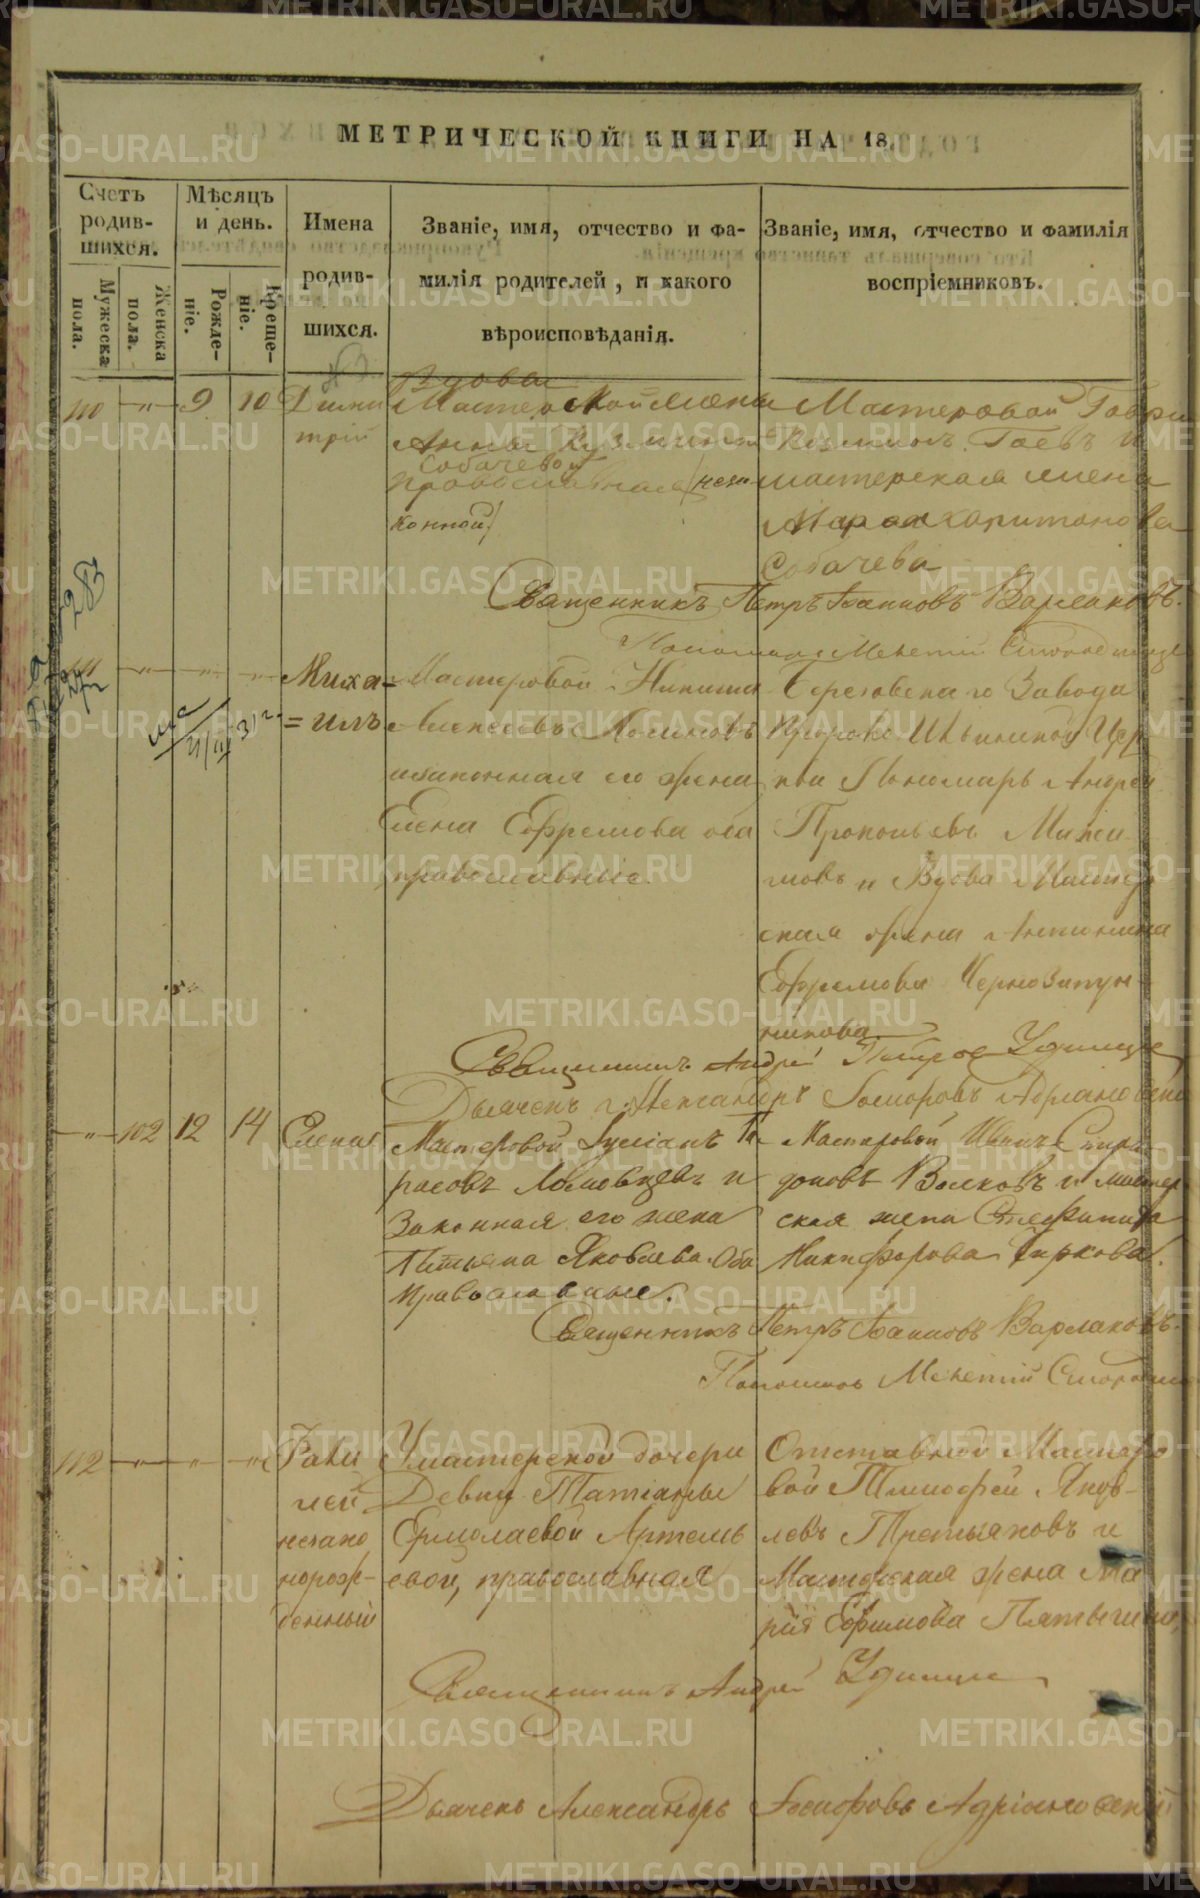 МЕТРИЧЕСКОЙ КНИГИ НА 18
Счетъ родив-шихся.
Мужеска пола.
Женска пола.
Мѣсяцъ и день.
Рожде-ніе.
Креще-ніе.
Имена
родив-
шихся.
Званіе, имя, отчество и фа-
милія родителей, и какого
вѣроисповѣданія.
Званіе, имя, отчество и фамилія
воспріемниковъ.
110 —„— 9 10
Дими
трій
Вдовы
Мастерской жены
Анны Кузминой
Собачевой
православная (неза
конной)
Мастеровой Гаври
Козминъ Гаевъ и
мастерская жена
Харитонова
Собачева
Священникъ Петръ Іоанновъ Варлаковъ.
283
111 —„— —„— —„—
Миха=
=илъ
Мастеровой Никита
Алексеевъ
и законная его жена
Елена Ефремова оба
православные.
Березовскаго Завода
Пророко Ильинской Цер
кви Пономарь Андрей
Прокопьевъ
и Вдова Мастер
ская жена Антонина
Ефремова
никова
Священникъ Андрей Петровъ Удинцевъ
Дьячекъ Александръ Адріановскій
—„— 102 12 14
Елена
Мастеровой Іуліанъ Та
расовъ и
Законная его жена
Татьяна Яковлева. Оба
Православные.
Мастеровой Иванъ Спири
доновъ Волковъ и мастер
ская жена Стефанида
Никифорова Чиркова.
Священникъ Петръ Іоанновъ Варлаковъ.
112 —„— —„— —„—
незако
норож-
денный
У мастерской дочери
Девицы Татіаны
Ермолаевой Артемь
евой, православная
Отставной Мастеро
вой Тимофей Яков-
левъ Третьяковъ и
Мастерская жена Ма
рія Ефимова
Священникъ Андрей Удинцевъ
Дьячекъ Александръ Адріановскій
METRIKI.GASO-URAL.RU